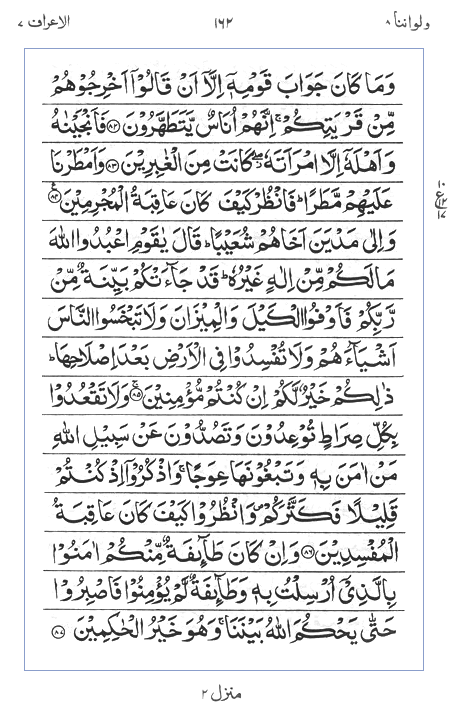 ولواننا ٨ ١٦٢ الاعراف ٧
وَمَا كَانَ جَوَابَ قَوْمِهٖۤ اِلَّاۤ اَنْ قَالُوْۤا اَخْرِجُوْهُمْ
مِّنْ قَرْيَتِكُمْ ۚ اِنَّهُمْ اُنَاسٌ يَّتَطَهَّرُوْنَ ﴿٨٢﴾ فَاَنْجَيْنٰهُ
وَاَهْلَهٗۤ اِلَّا امْرَاَتَهٗ ۖ كَانَتْ مِنَ الْغٰبِرِيْنَ ﴿٨٣﴾ وَاَمْطَرْنَا
عَلَيْهِمْ مَّطَرًا ؕ فَانْظُرْ كَيْفَ كَانَ عَاقِبَةُ الْمُجْرِمِيْنَ ﴿٨٤﴾
١٠
ع ١٢
١٧
وَاِلٰى مَدْيَنَ اَخَاهُمْ شُعَيْبًا ؕ قَالَ يٰقَوْمِ اعْبُدُوا اللّٰهَ
مَا لَكُمْ مِّنْ اِلٰهٍ غَيْرُهٗ ؕ قَدْ جَآءَتْكُمْ بَيِّنَةٌ مِّنْ
رَّبِّكُمْ فَاَوْفُوا الْكَيْلَ وَالْمِيْزَانَ وَلَا تَبْخَسُوا النَّاسَ
اَشْيَآءَهُمْ وَلَا تُفْسِدُوْا فِى الْاَرْضِ بَعْدَ اِصْلَاحِهَا ؕ
ذٰلِكُمْ خَيْرٌ لَّكُمْ اِنْ كُنْتُمْ مُّؤْمِنِيْنَ ﴿٨٥﴾ وَلَا تَقْعُدُوْا
بِكُلِّ صِرَاطٍ تُوْعِدُوْنَ وَتَصُدُّوْنَ عَنْ سَبِيْلِ اللّٰهِ
مَنْ اٰمَنَ بِهٖ وَتَبْغُوْنَهَا عِوَجًا ۚ وَاذْكُرُوْۤا اِذْ كُنْتُمْ
قَلِيْلًا فَكَثَّرَكُمْ ۖ وَانْظُرُوْا كَيْفَ كَانَ عَاقِبَةُ
الْمُفْسِدِيْنَ ﴿٨٦﴾ وَاِنْ كَانَ طَآئِفَةٌ مِّنْكُمْ اٰمَنُوْا
بِالَّذِىْۤ اُرْسِلْتُ بِهٖ وَطَآئِفَةٌ لَّمْ يُؤْمِنُوْا فَاصْبِرُوْا
حَتّٰى يَحْكُمَ اللّٰهُ بَيْنَنَا ۚ وَهُوَ خَيْرُ الْحٰكِمِيْنَ ﴿٨٧﴾
منزل ٢